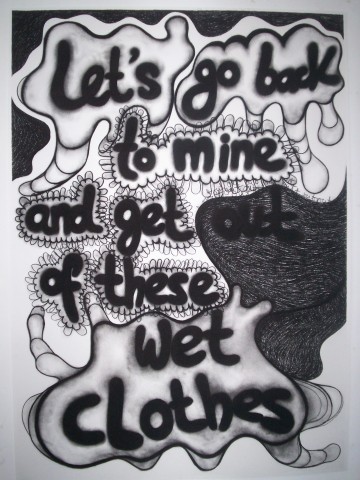 Let's go back
to mine
and get out
of these
wet
clothes